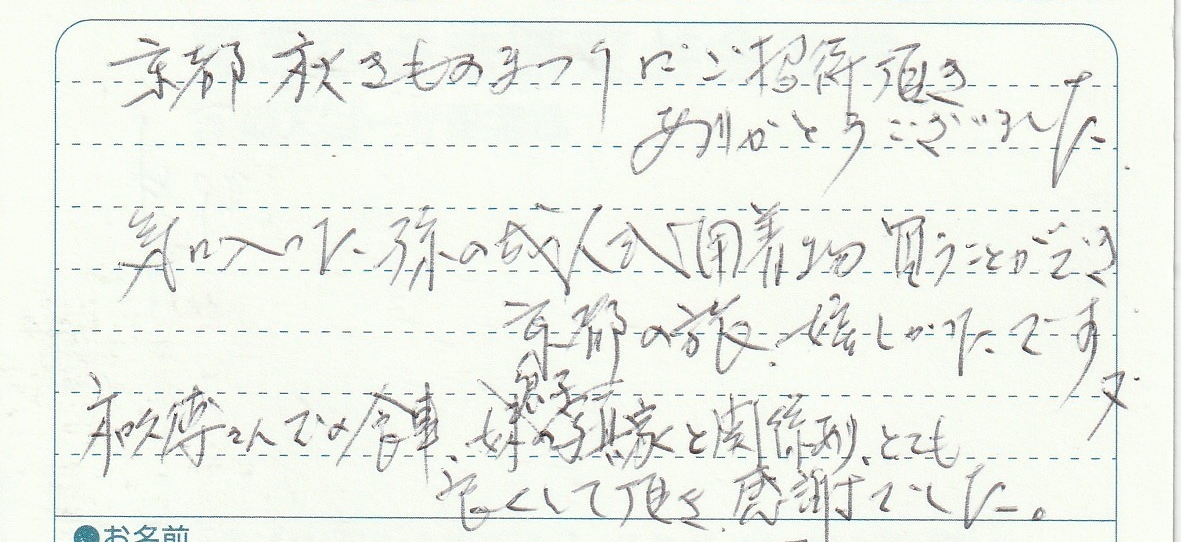 京都 秋きものまつりにご招待頂き
ありがとうございました
気に入った孫の成人式用着物買うことができ
京都の旅、嬉しかったです
息子
さんでの食事、嫁の実家と関係あり、とても
良くして頂き、感謝でした。
お名前